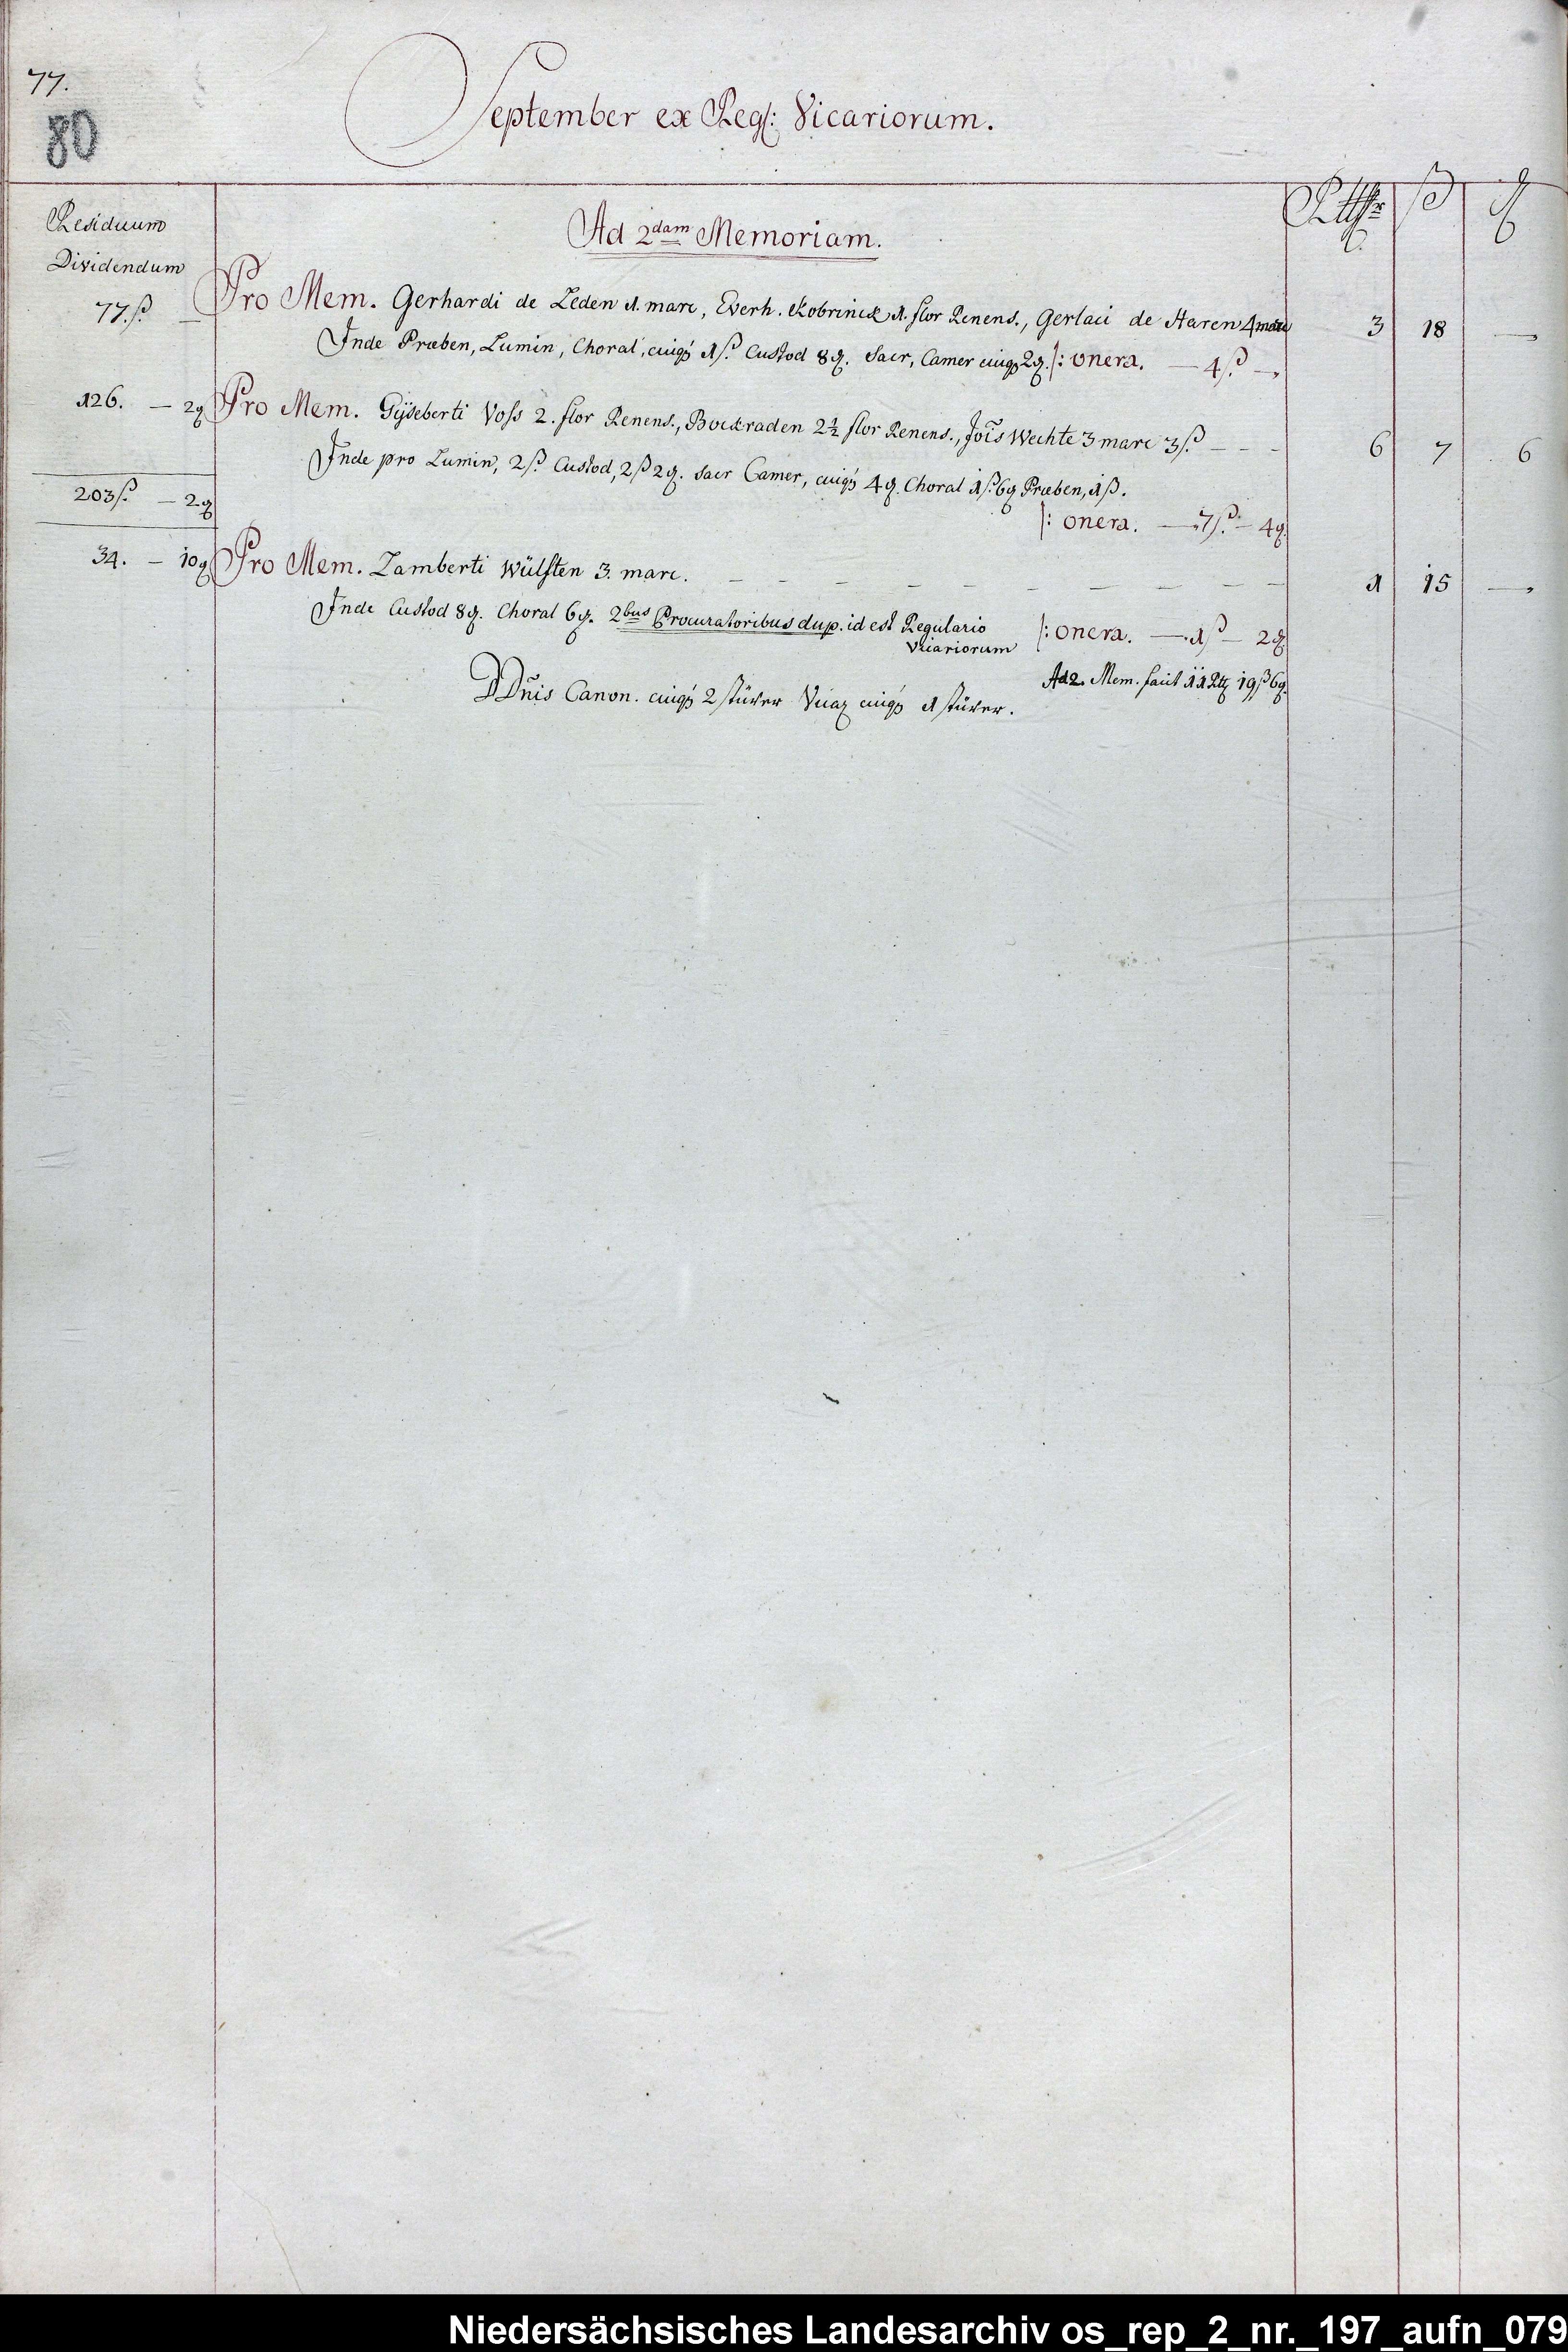 77.
80
September ex Reg: Vicariorum.
Residuum
Dividendum
Rtlr ß ₰
Ad 2dam Memoriam.
77.ß. — Pro Mem. Gerhardi de Leden 1. marc, Everh. Kobrinck 1. flor Renens., Gerlaci de Haren 4 marc 3 18 —
Inde Præben, Lumin, Choral, cuiq 1ß. Custod 8₰. Sacr, Camer cuiq 2₰. /: onera. — 4ß. —
126. — 2₰ Pro Mem. Gÿseberti Voss 2. flor Renens., Bockraden 2½ flor Renens., Jois Wechte 3 marc 3ß. – – – 6 7 6
Inde pro Lumin, 2ß. Custod, 2ß 2₰. Sacr Camer, cuiq 4₰. Choral 1ß. 6₰ Præben, 1ß.
203ß. — 2₰
/: onera. — 7ß. — 4₰.
34. — 10₰ Pro Mem. Lamberti Wülften 3. marc. – – – – – – – – – 1 15 —
Inde Custod 8₰. Choral 6₰. 2bus Procuratoribus dup. id est Regulario
Vicariorum /: onera. — 1ß — 2₰
Ad 2. Mem. facit 11 Rtl 19ß 6₰.
DDnis Canon. cuiq 2 stüver Vicar cuiq 1 stüver.
Niedersächsisches Landesarchiv os_rep_2_nr._197_aufn_079